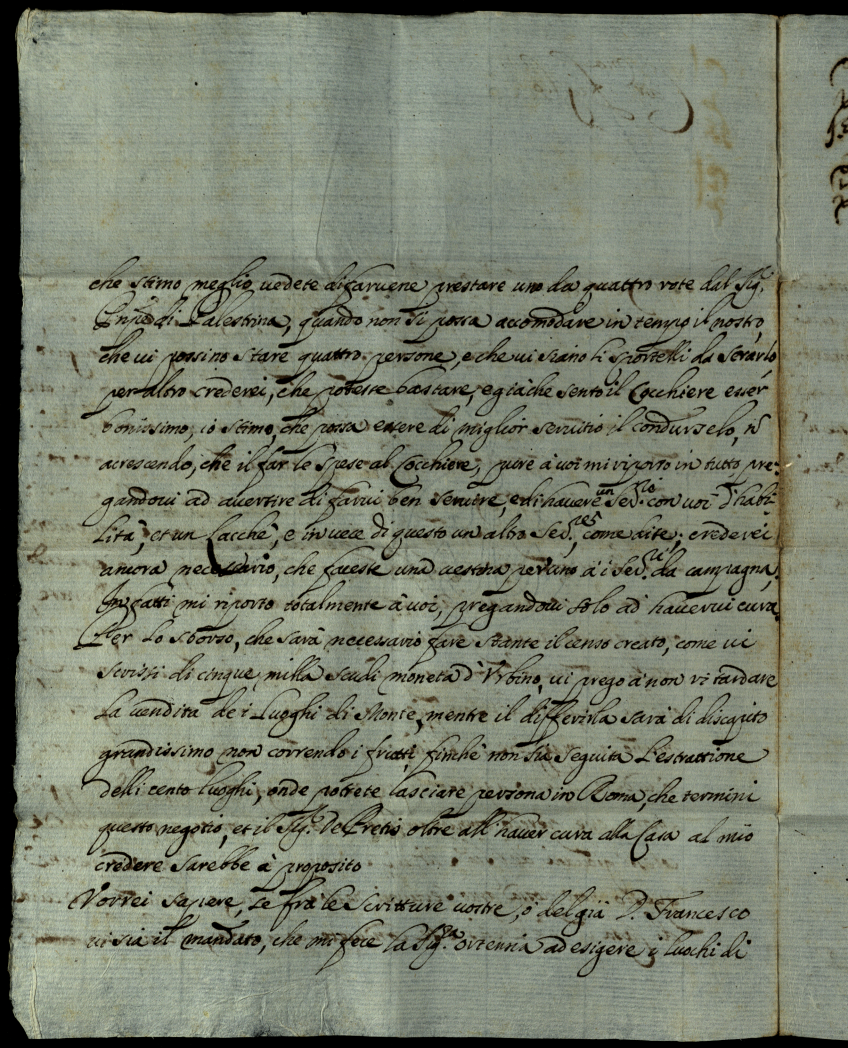 che stimo meglio, vedete di farvene prestare uno da quattro rote dal Sig.
di Palestrina, quando non si possa accomodare in tempo il nostro,
che vi possino stare quattro persone, e che vi siano li sportelli da serarlo
per altro crederei, che potesse bastare, e già che sento il Cocchiere esser
bonissimo, io stimo, che possa essere di miglior servitio il condurselo, nō
acrescendo, che il far le spese al Cocchiere, pure à voi mi riporto in tutto, pre-
gandovi ad avertire di farvi ben servire, e di havere un Ser.re con voi d'habi-
lità, et un Lacchè, e in vece di questo un altro Ser.re, come dite; crederei
ancora necessario, che faceste una vestina per uno à i Ser.ri da campagna,
In fatti mi riporto totalmente à voi, pregandovi solo ad havervi cura.
Per lo sborso, che sarà necessario fare stante il censo creato, come vi
scrissi di cinque milla scudi moneta d'Urbino, vi prego à non ritardare
la vendita de i Luoghi di Monte, mentre il differirla sarà di discapito
grandissimo non correndo i frutti, finche non sia seguita l'estrattione
delli cento luoghi, onde potrete lasciare persona in Roma, che termini
questo negotio, et il Sig. De Pretis oltre all'haver cura alla Casa al mio
credere sarebbe à proposito
Vorrei sapere, se frà le Scritture vostre, ò del già D. Francesco
vi sia il mandato, che mi fece la Sig.ra Ortensia ad esigere i luochi di